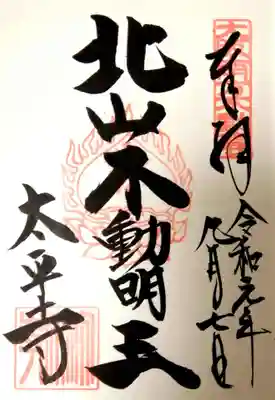 奉拝
令和元年
九月七日
北山不動明王
太平寺